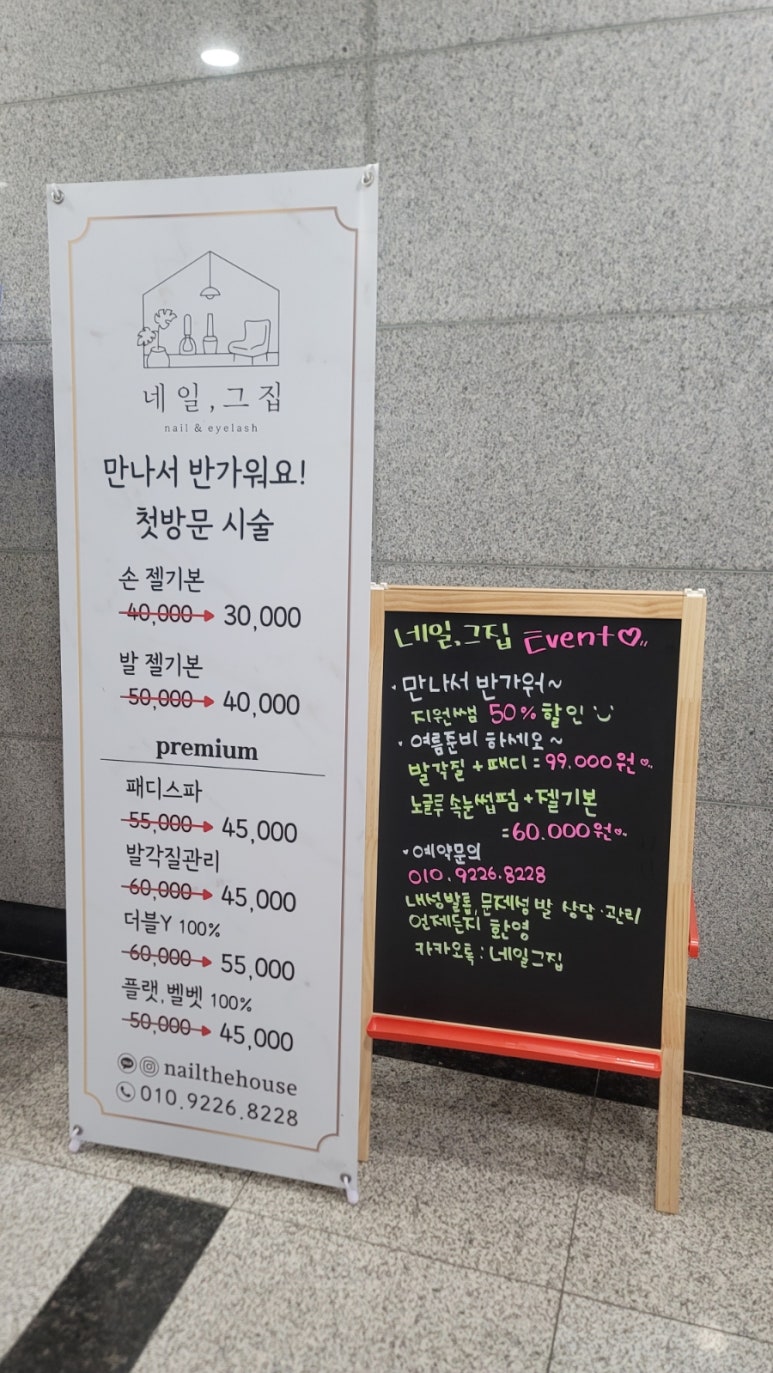 네일,그집
nail & eyelash
만나서 반가워요!
첫방문 시술
손 젤기본
40,000 → 30,000
발 젤기본
50,000 → 40,000
premium
패디스파
55,000 → 45,000
발각질관리
60,000 → 45,000
더블Y 100%
60,000 → 55,000
플랫,벨벳 100%
50,000 → 45,000
nailthehouse
010.9226.8228
네일,그집 Event♡,,
· 만나서 반가워~
지원쌤 50% 할인
· 여름준비 하세오~
발각질+패디=99.000원♡..
노글루 속눈썹펌+젤기본
=60.000원♡..
· 예약문의
010.9226.8228
내성발톱,문제성 발 상담·관리
언제든지 환영
카카오톡:네일그집